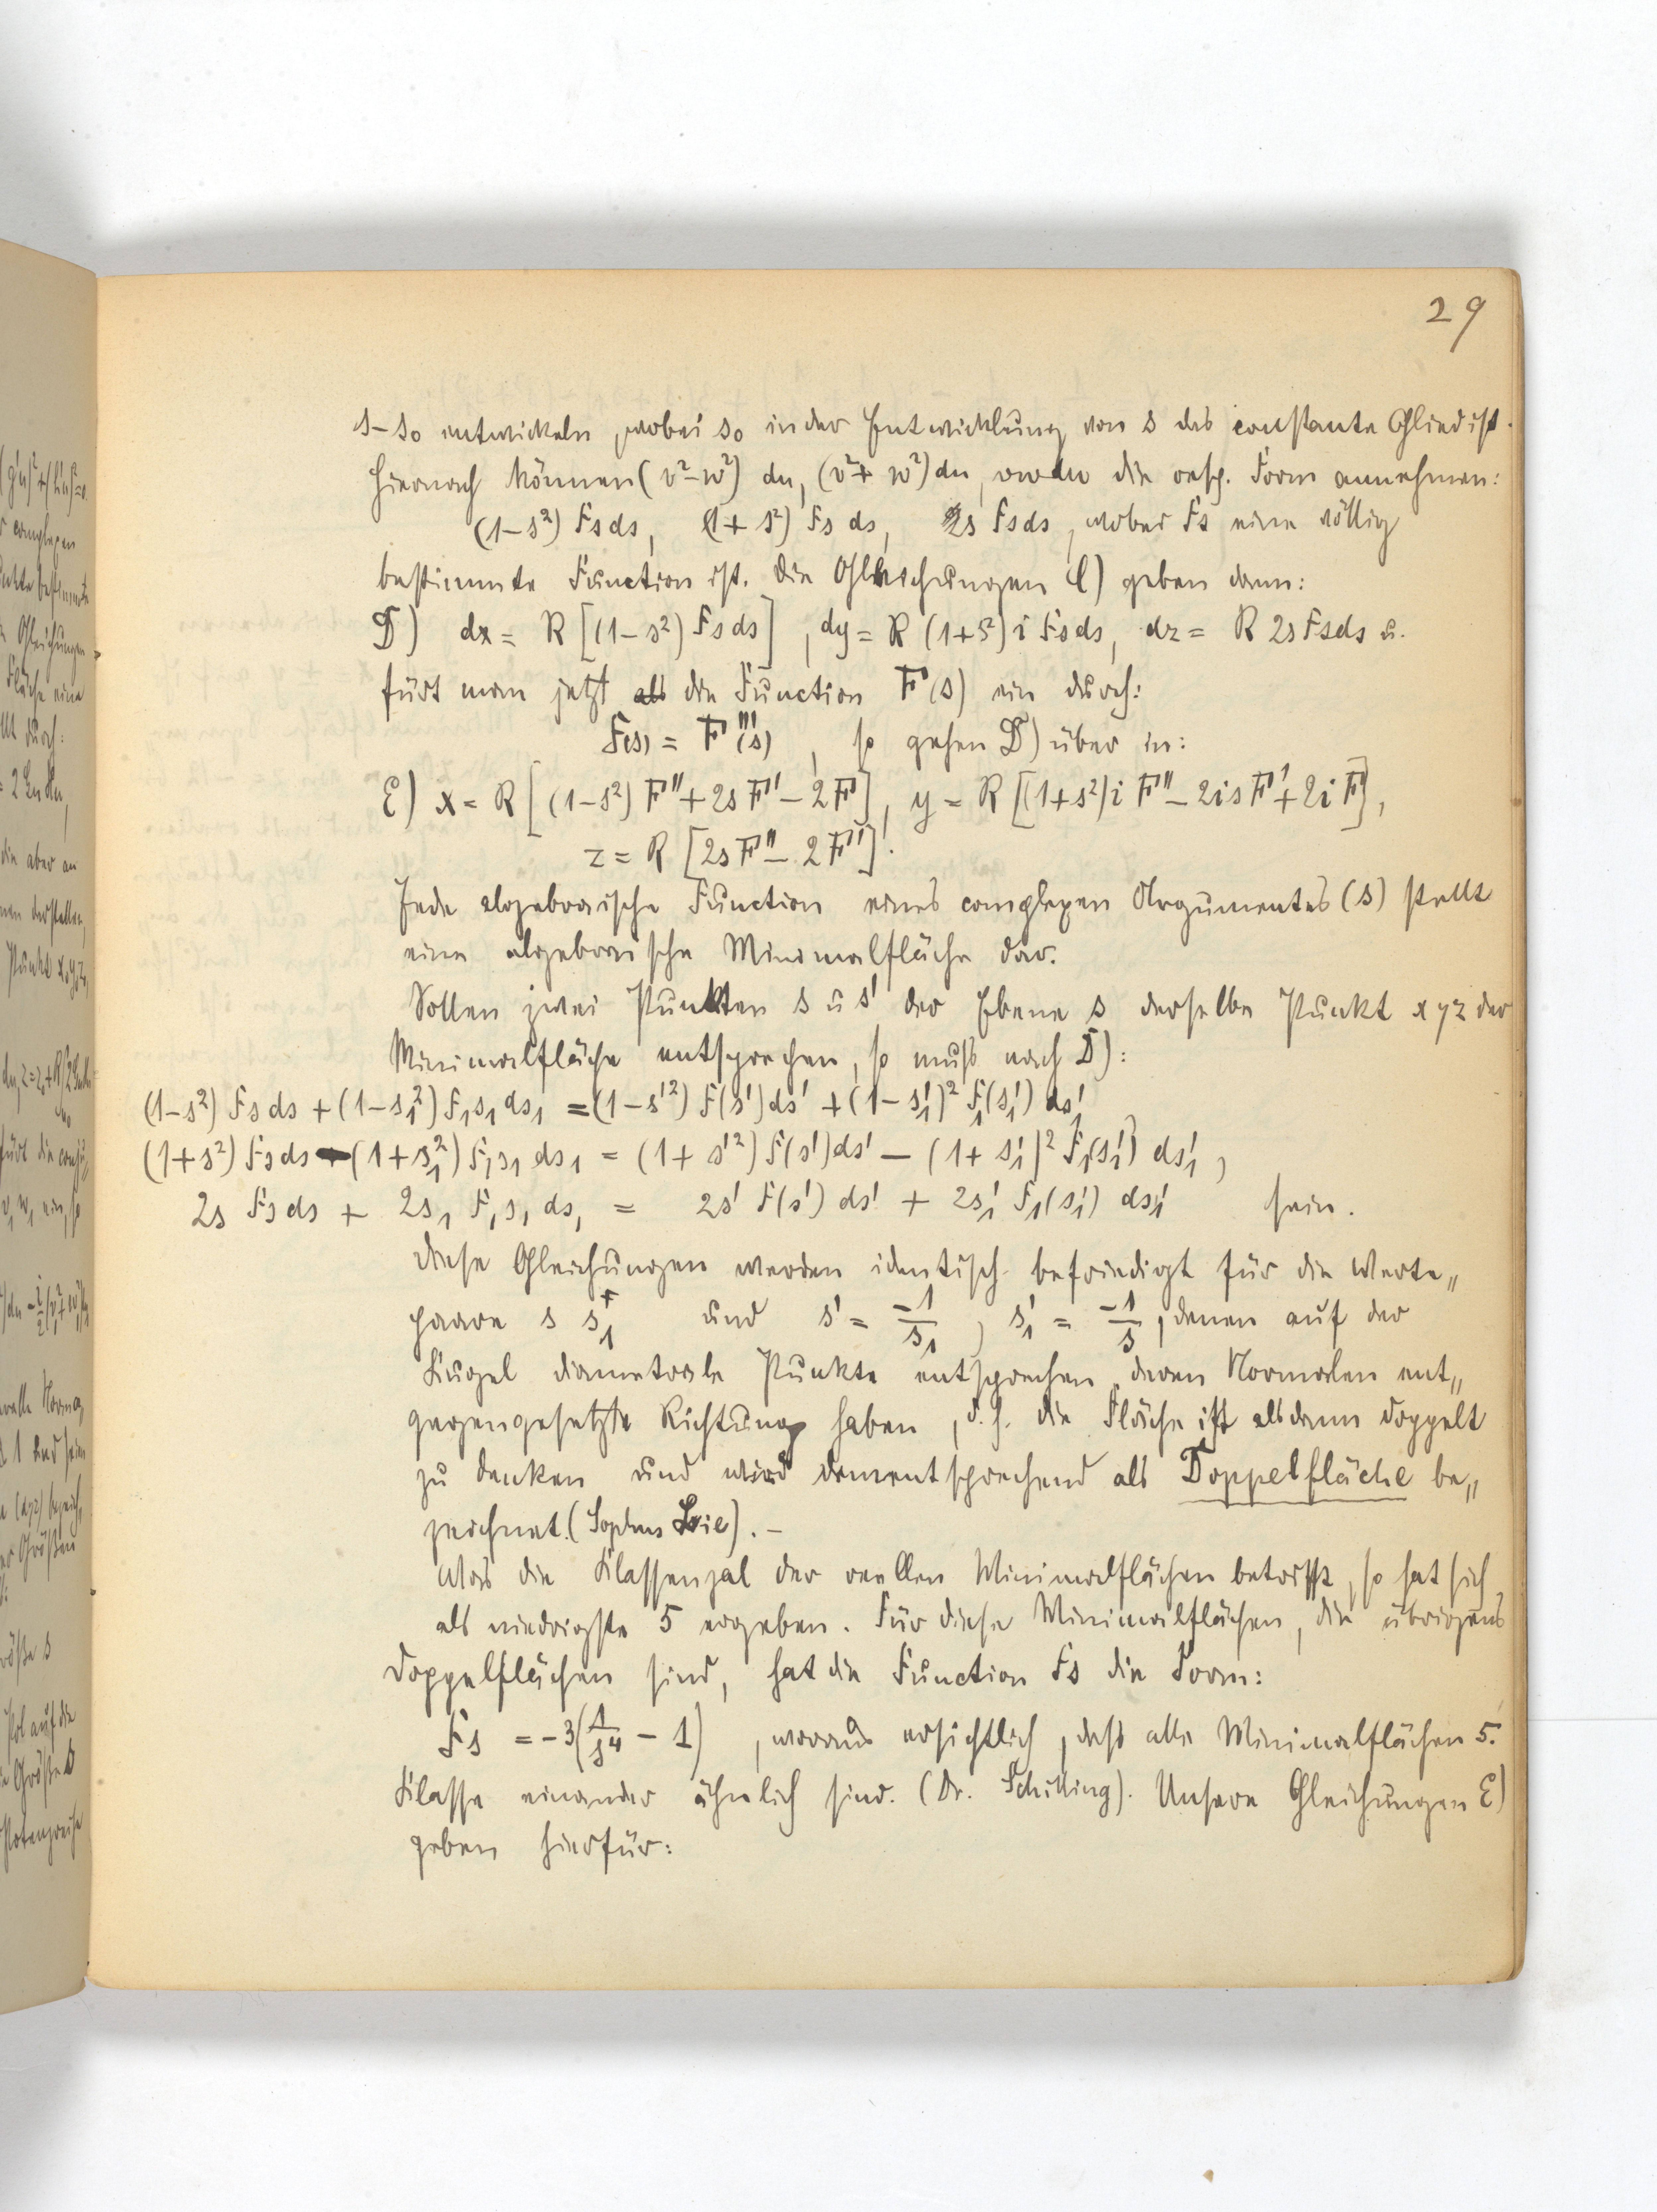 29
s–s₀ entwickeln, wobei s₀ in der Entwicklung von s das constante Glied ist.
Hiernach können (v²–w²) du, (v²+w²) du, vwdu die resp. Form annehmen:
(1–s²) Fs ds, (1+s²) Fs ds, 2s Fs ds, wobei Fs eine völlig
bestimmte Function ist. Die Gleichungen C) geben dann:
D) dx = R[(1–s²) Fs ds], dy = R (1+s²) i Fs ds, dz = R 2s Fs ds u.
fürt man jetzt die Function F(s) ein durch:
F(s) = F'''(s), so gehen D) über in:
E) x = R[(1–s²) F''+2s F'–2F], y = R[(1+s²) i F''–2is F'+2i F],
z = R [2s F''–2F'].
Jede algebraische Function eines complexen Argumentes (s) stellt
eine algebraische Minimalfläche dar.
Sollen zwei Punkten s u s' der Ebene s derselbe Punkt xyz der
Minimalfläche entsprechen, so muß nach D):
(1–s²) Fs ds + (1–s₁²) F₁s₁ ds₁ = (1–s'²) F(s') ds' + (1–s₁')² F₁(s₁') ds₁'
(1+s²) Fs ds – (1+s₁²) F₁s₁ ds₁ = (1+s'²) F(s') ds' – (1+s₁')² F₁(s₁') ds₁',
2s Fs ds + 2s₁ F₁s₁ ds₁ = 2s' F(s') ds' + 2s₁' F₁(s₁') ds₁' sein.
Diese Gleichungen werden identisch befriedigt für die Werte„
paare s s₁ und s' = –1/s₁, s₁' = –1/s, denen auf der
Kugel diametrale Punkte entsprechen, deren Normalen ent„
gegengesetzte Richtung haben, d. h. die Fläche ist alsdann doppelt
zu denken und wird dementsprechend als Doppelfläche be„
zeichnet. (Sophus Lie). –
Was die Klassenzal der reellen Minimalflächen betrifft, so hat sich
als niedrigste 5 ergeben. Für diese Minimalflächen, die übrigens
Doppelflächen sind, hat die Function Fs die Form:
Fs = –3(1/s⁴ – 1), woraus ersichtlich, daß alle Minimalflächen 5.
Klasse einander ähnlich sind. (Dr. Schilling). Unsere Gleichungen E)
geben hierfür: